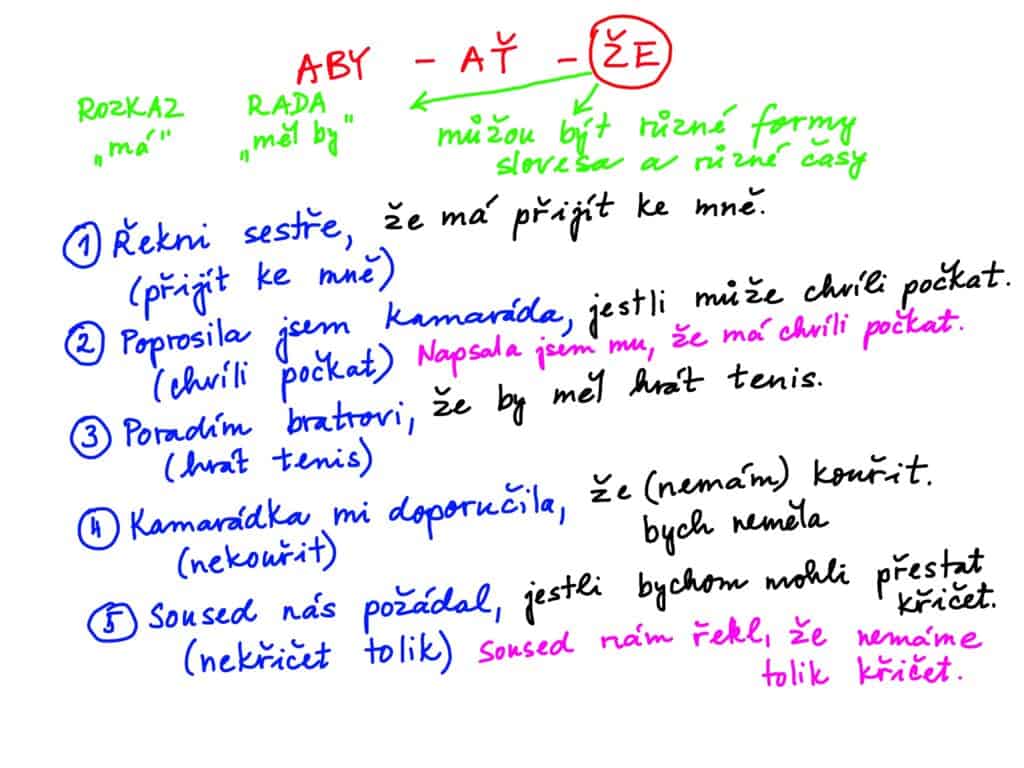 ABY - AŤ - ŽE
ROZKAZ RADA
„má" „měl by" můžou být různé formy
slovesa a různé časy
① Řekni sestře, že má přijít ke mně.
(přijít ke mně)
② Poprosila jsem kamaráda, jestli může chvíli počkat.
(chvíli počkat) Napsala jsem mu, že má chvíli počkat.
③ Poradím bratrovi, že by měl hrát tenis.
(hrát tenis)
④ Kamarádka mi doporučila, že (nemám) kouřit.
(nekouřit) bych neměla
⑤ Soused nás požádal, jestli bychom mohli přestat
křičet.
(nekřičet tolik) Soused nám řekl, že nemáme
tolik křičet.